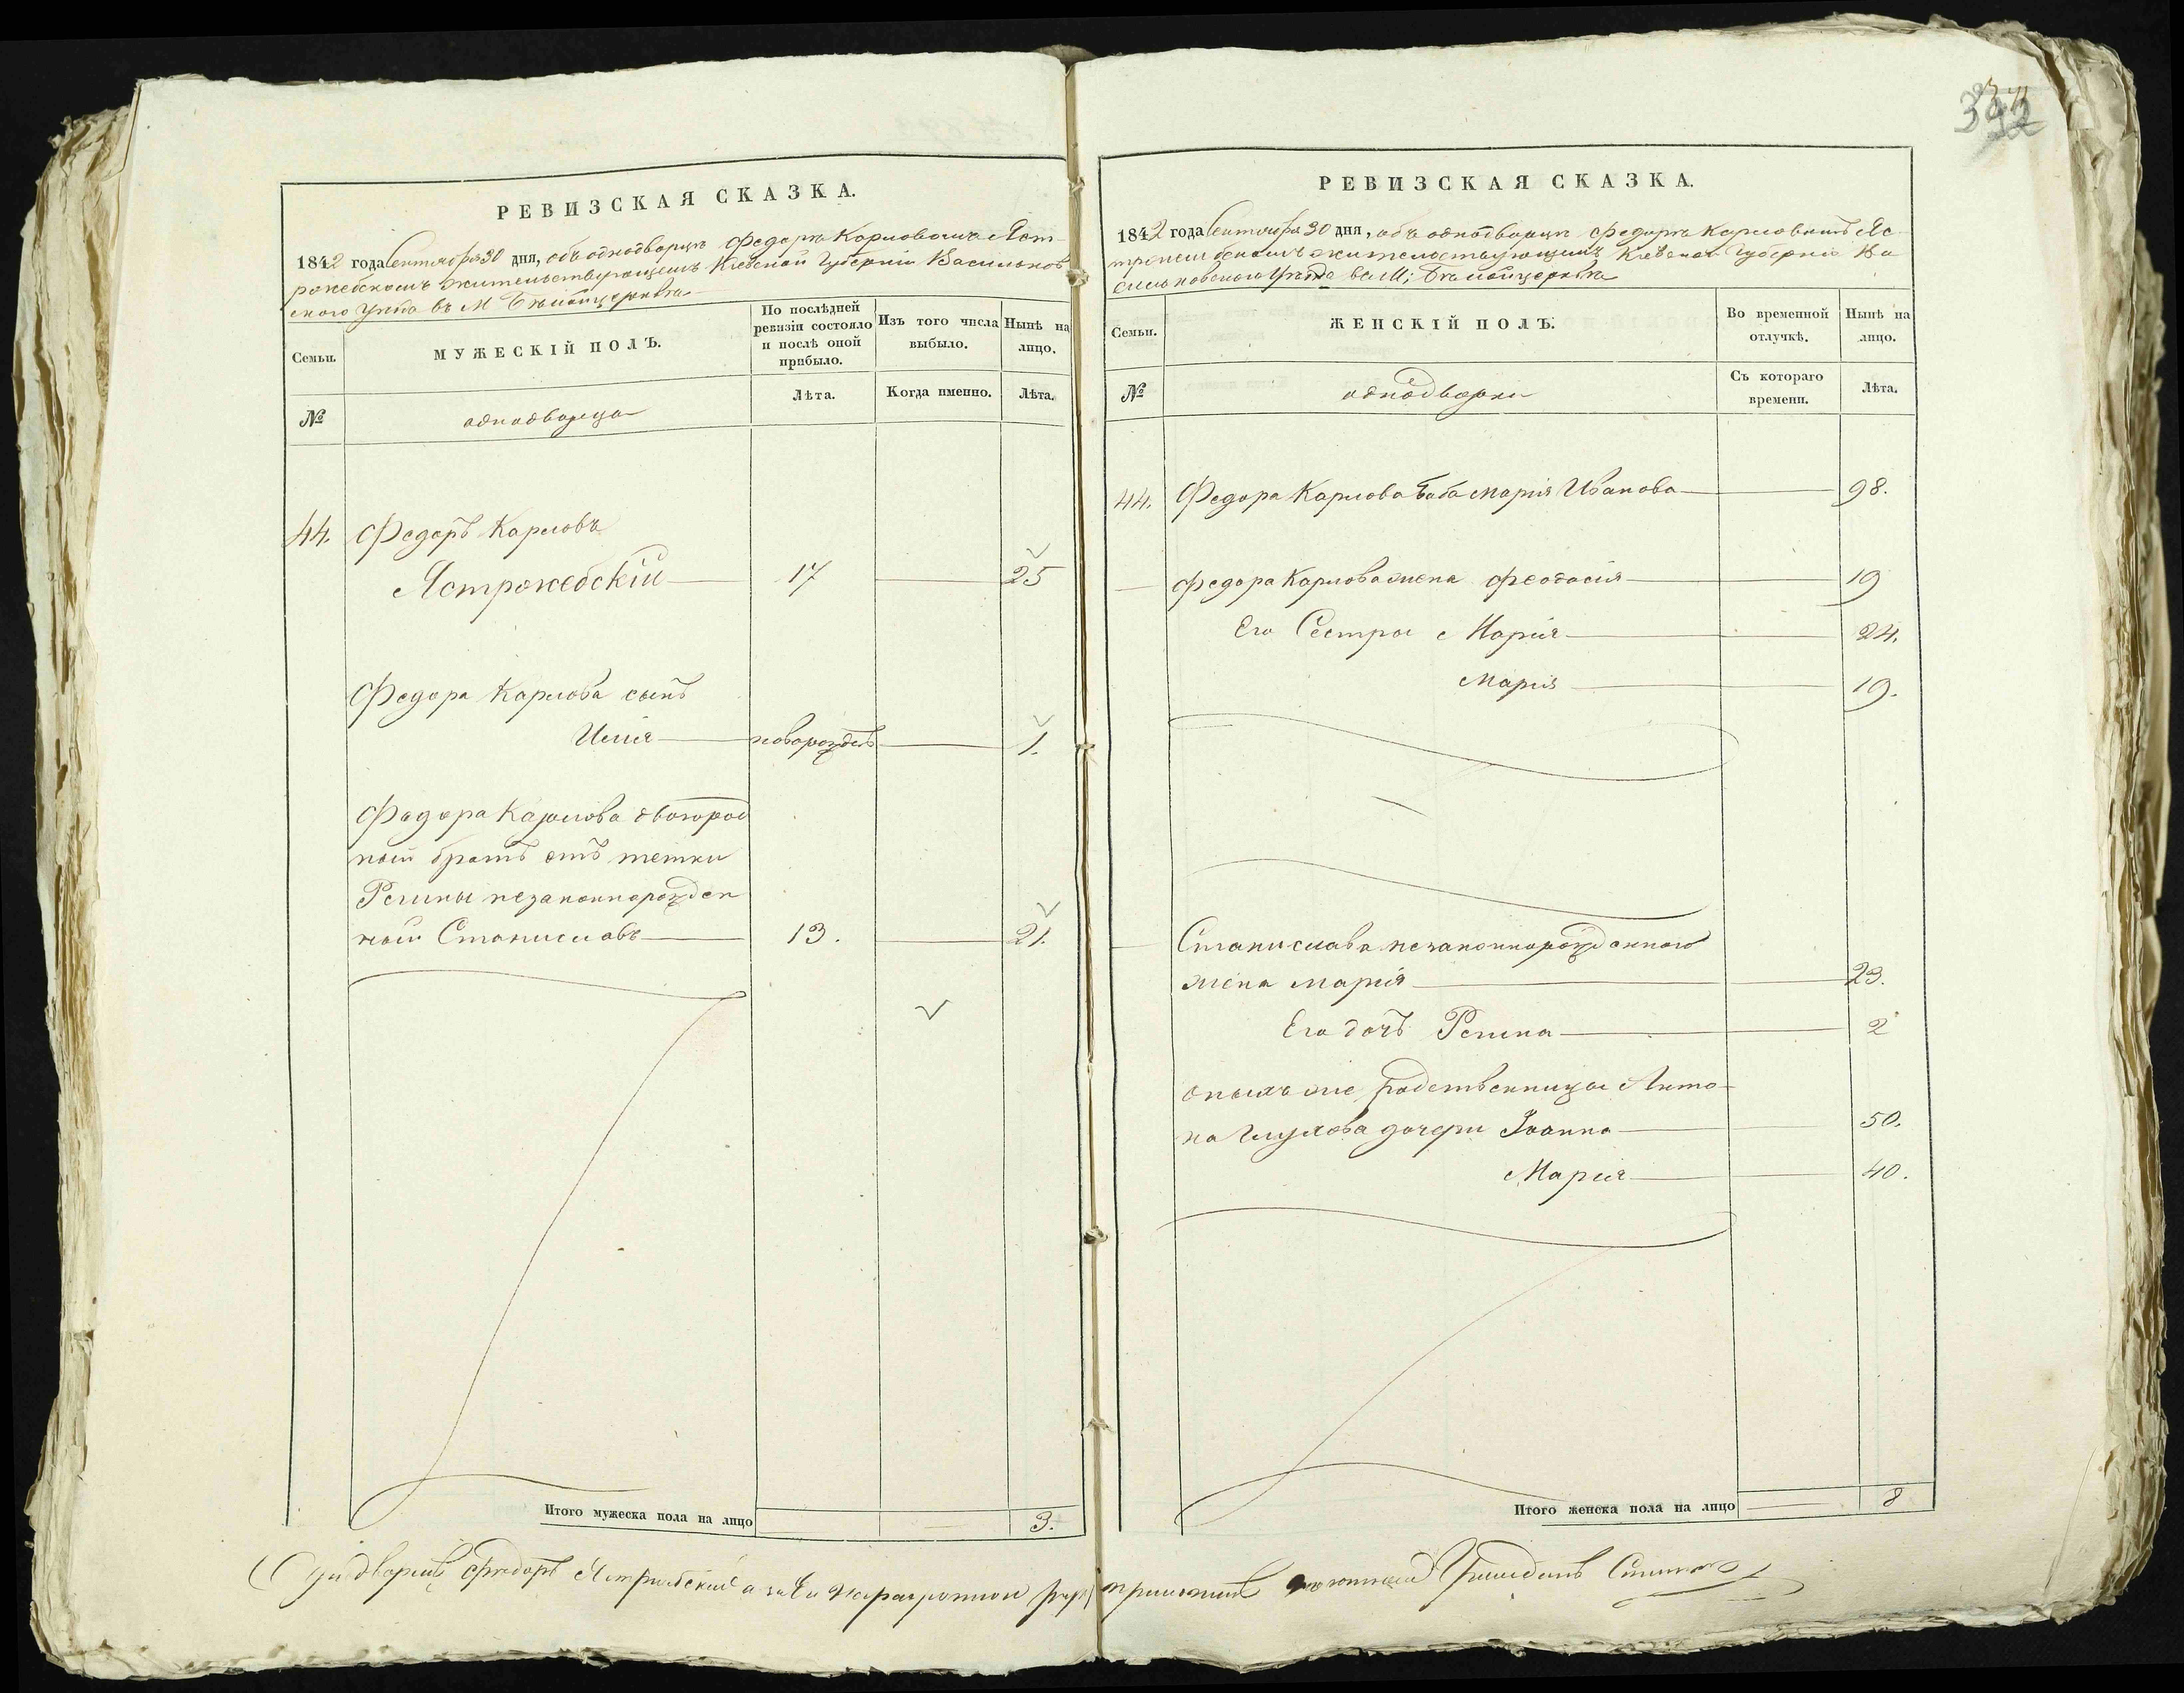 РЕВИЗСКАЯ СКАЗКА.
1842 года Сентября 30 дня, объ однодворцѣ Федорѣ Карловомъ Яст-
рожебскомъ жительствующемъ Кіевской Губерніи Васильков
ского Уѣзда въ М Бѣлойцерквѣ
Семьи.
МУЖЕСКІЙ ПОЛЪ.
По послѣдней ревизіи состояло и послѣ оной прибыло.
Изъ того числа выбыло.
Нынѣ на лицо.
№
однодворца
Лѣта.
Когда именно.
Лѣта.
44. Федоръ Карловъ
Ястрожебскій 17 25
Федора Карлова сынъ
Илія новорожден 1.
Федора Карлова двоюрод
ный братъ отъ тетки
Регины незаконнорожден
ный Станиславъ 13. 21.
Итого мужеска пола на лицо 3.
РЕВИЗСКАЯ СКАЗКА.
1842 года Сентября 30 дня, объ однодворцѣ Федорѣ Карловимъ Яс-
трожебскомъ жительствующимъ Кіевской Губерніи Ва
сильковского Уѣзда въ М; Бѣлойцерквѣ
Семьи.
ЖЕНСКІЙ ПОЛЪ.
Во временной отлучкѣ.
Нынѣ на лицо.
№
однодворки
Съ котораго времени.
Лѣта.
44. Федора Карлова баба Марія Иванова 98.
Федора Карлова жена Феодосія 19
Его Сестра Марія 24.
Марія 19.
Станислава незаконнорожденного
жена Марія 23.
Его дочъ Регина 2
оныхъ же родственницы Анто-
на дочери Іоанна 50.
Марія 40.
Итого женска пола на лицо 8
Однодворецъ Федоръ Ястржебский а за его неграмотнои